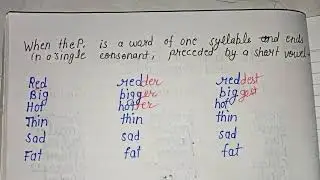 When the P. is a word of one syllable and ends
in a single consonant, preceded by a short vowel
Red redder reddest
Big bigger biggest
Hot hotter hot
Thin thin thin
Sad sad sad
Fat fat fat